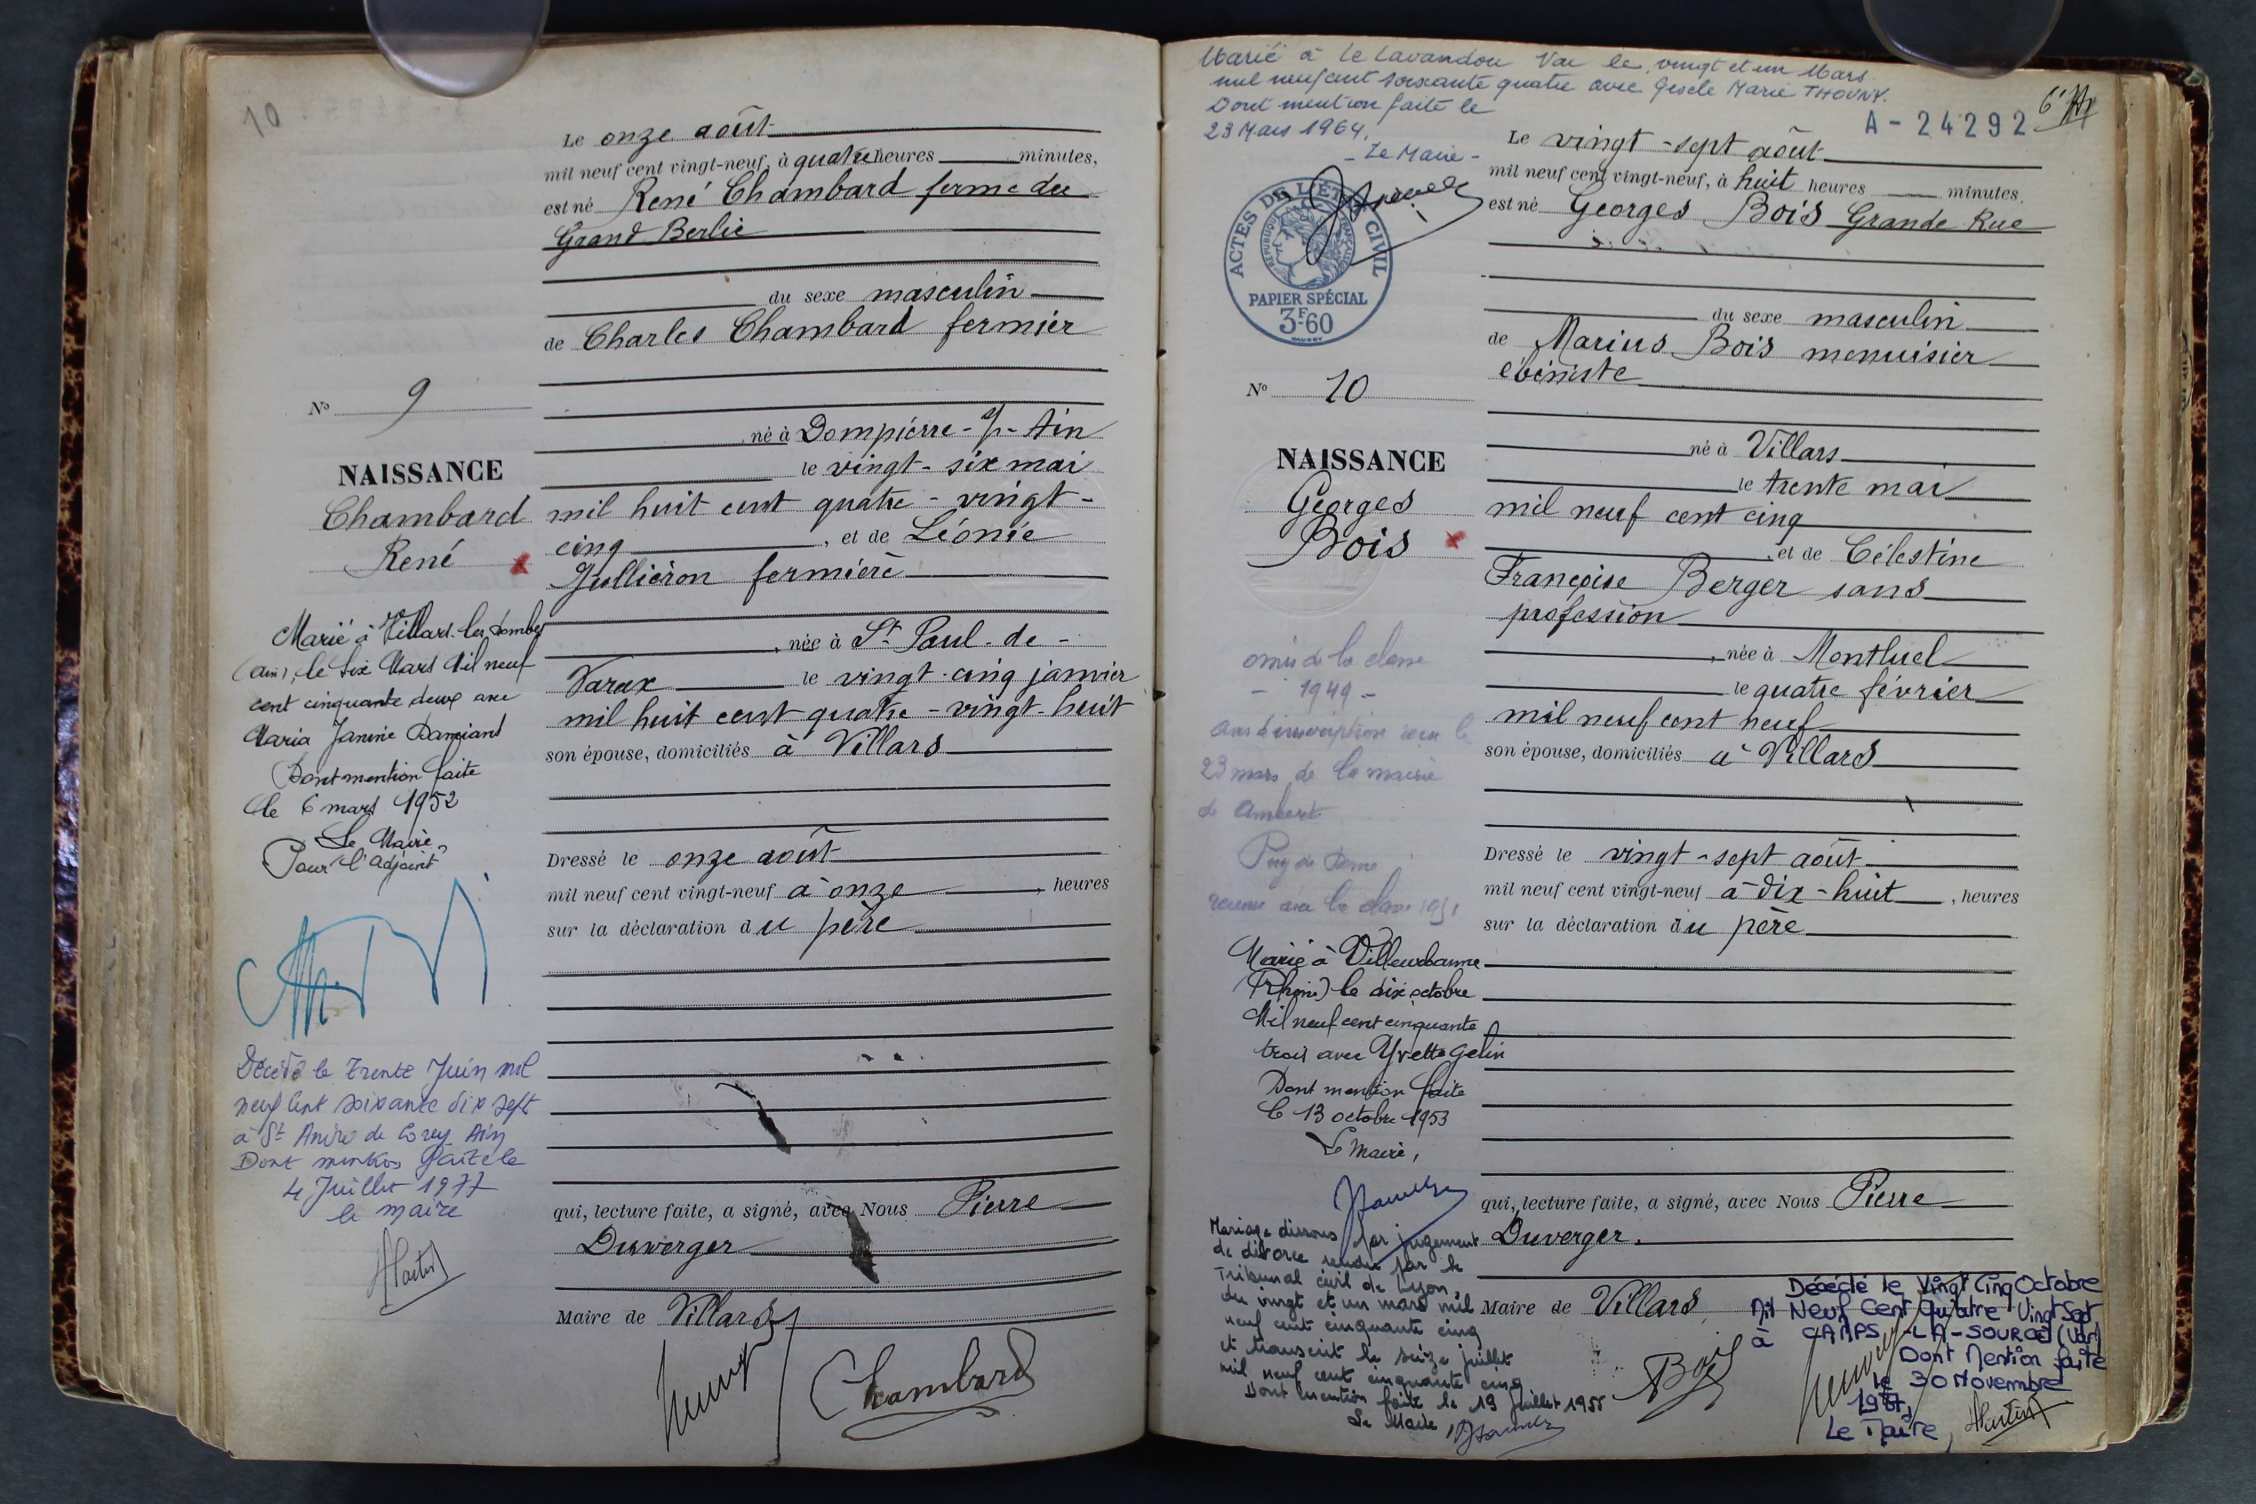 10
Le onze août
mil neuf cent vingt-neuf, à quatre heures minutes,
est né René Chambard ferme du
Grand Berlie
du sexe masculin
de Charles Chambard fermier
né à Dompierre-s/-Ain
le vingt-six mai
mil huit cent quatre-vingt-
cinq, et de Léonie
Jullieron fermière
, née à St Paul-de-
Varax le vingt-cinq janvier
mil huit cent quatre-vingt-huit
son épouse, domiciliés à Villars
Dressé le onze août
mil neuf cent vingt-neuf à onze, heures
sur la déclaration du père
qui, lecture faite, a signé, avec Nous Pierre
Duverger
Maire de Villars
Chambard
No 9
NAISSANCE
Chambard
René
Marié à Villars les Dombes
(Ain), le six Mars Mil neuf
cent cinquante deux avec
Maria Janine Damiant
Dont mention faite
le 6 mars 1952
Le Maire,
Pour l'adjoint
Décédé le trente Juin mil
neuf cent soixante dix sept
à St André de Corcy Ain
Dont mention faite le
4 Juillet 1977
le maire
Marié à Le Lavandou Var le vingt et un Mars
mil neuf cent soixante quatre avec Gisèle Marie THOUNY.
Dont mention faite le
23 Mars 1964,
- Le Maire -
A-24292
ACTES DE L'ÉTAT CIVIL
RÉPUBLIQUE FRANÇAISE
PAPIER SPÉCIAL
3F60
Le vingt-sept août
mil neuf cent vingt-neuf, à huit heures minutes,
est né Georges Bois Grande Rue
du sexe masculin
de Marius Bois menuisier
ébéniste
né à Villars
le trente mai
mil neuf cent cinq
, et de Célestine
Françoise Berger sans
profession
, née à Montluel
le quatre février
mil neuf cent neuf
son épouse, domiciliés à Villars
Dressé le vingt-sept août
mil neuf cent vingt-neuf à dix-huit, heures
sur la déclaration du père
qui, lecture faite, a signé, avec Nous Pierre
Duverger.
Maire de Villars
Bois
No 10
NAISSANCE
Georges
Bois
omis de la classe
- 1949 -
avis d'inscription reçu le
23 mars de la mairie
de Ambert
Puy de Dome
recensé avec la classe 1951
Marié à Villeurbanne
(Rhône) le dix octobre
Mil neuf cent cinquante
trois avec Yvette Gelin
Dont mention faite
le 13 octobre 1953
Le Maire,
Mariage dissous par jugement
de divorce rendu par le
Tribunal civil de Lyon,
du vingt et un mars mil
neuf cent cinquante cinq
et transcrit le seize juillet
mil neuf cent cinquante cinq
Dont mention faite le 19 Juillet 1955
Le Maire,
Décédé le Vingt Cinq Octobre
Mil Neuf Cent Quatre Vingt Sept
à CAMPS-LA-SOURCE (Var)
Dont Mention faite
le 30 Novembre
1987,
Le Maire,